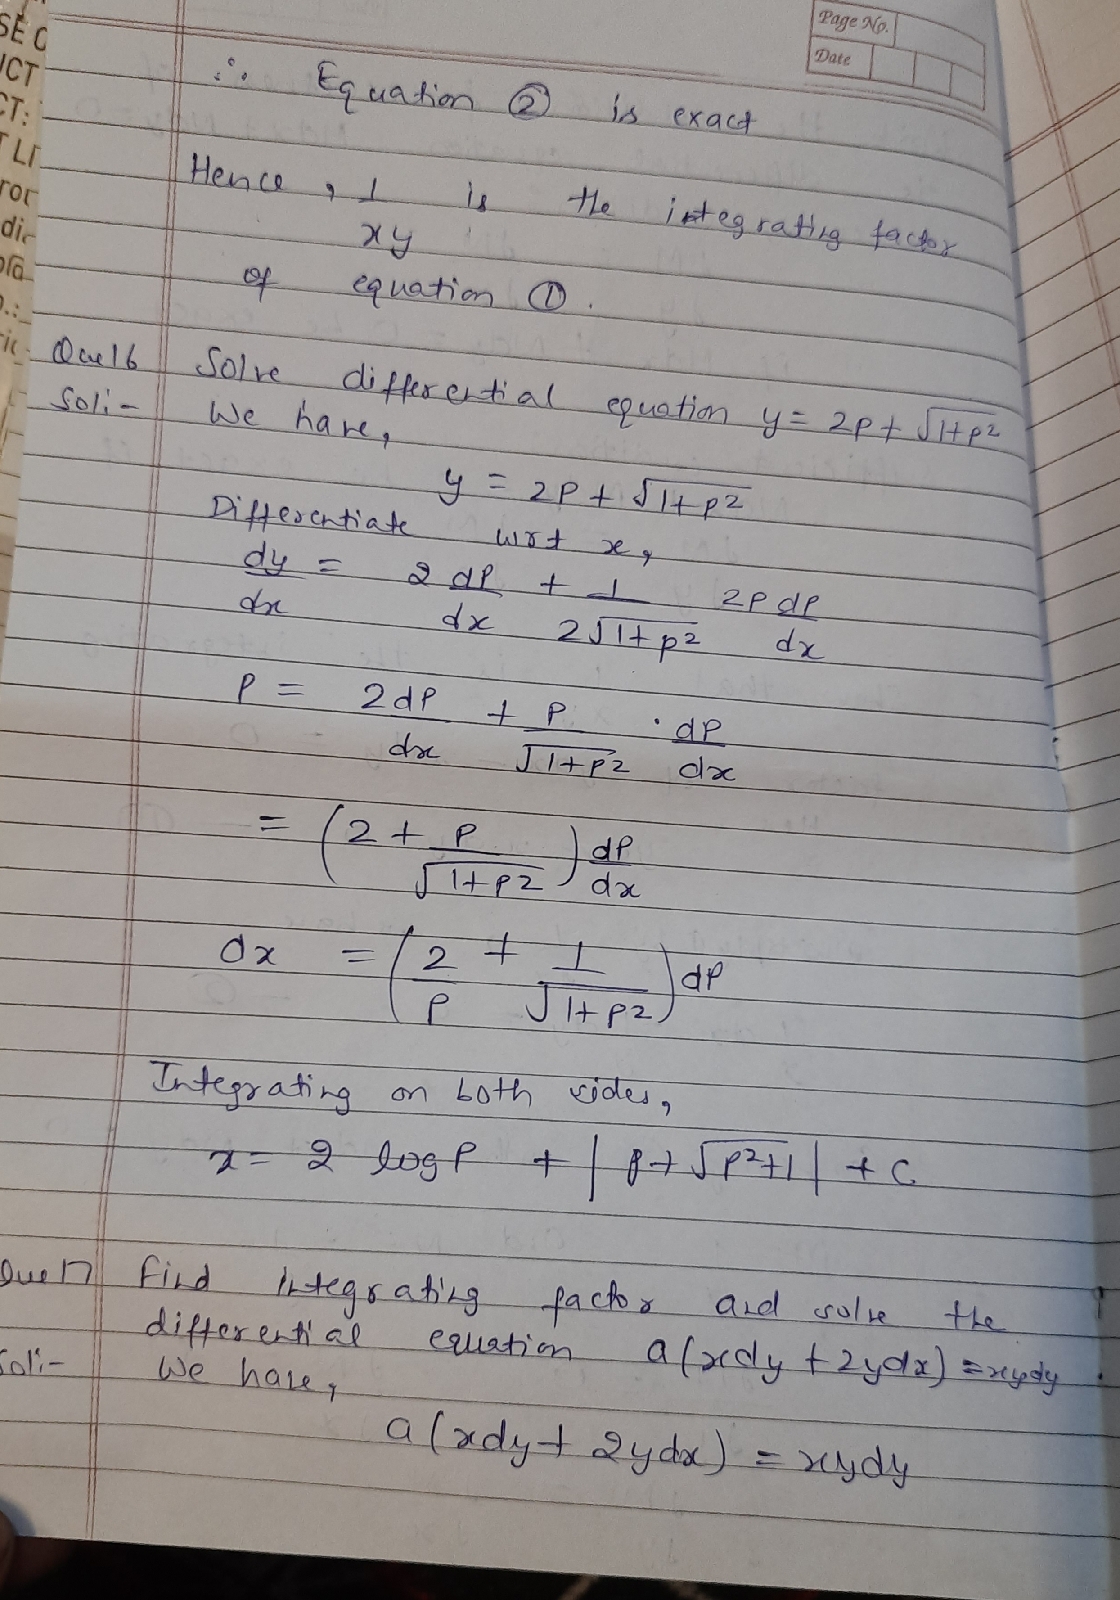 SE C
ICT
CT:
T LI
Page No.
Date
∴ Equation ② is exact
Hence, 1/xy is the integrating factor
of equation ①.
Que16 Solve differential equation y = 2p + √1+p2
Sol:- We have,
y = 2p + √1+p2
Differentiate wrt x,
dy/dx = 2 dp/dx + 1/2√1+p2 2p dp/dx
p = 2dp/dx + p/√1+p2 · dp/dx
= (2 + p/√1+p2) dp/dx
dx = (2/p + 1/√1+p2) dp
Integrating on both sides,
x = 2 log p + | p + √p2+1 | + c
Que 17 Find integrating factor and solve the
differential equation a(xdy + 2ydx) = xydy
Sol:- We have,
a(xdy + 2ydx) = xydy